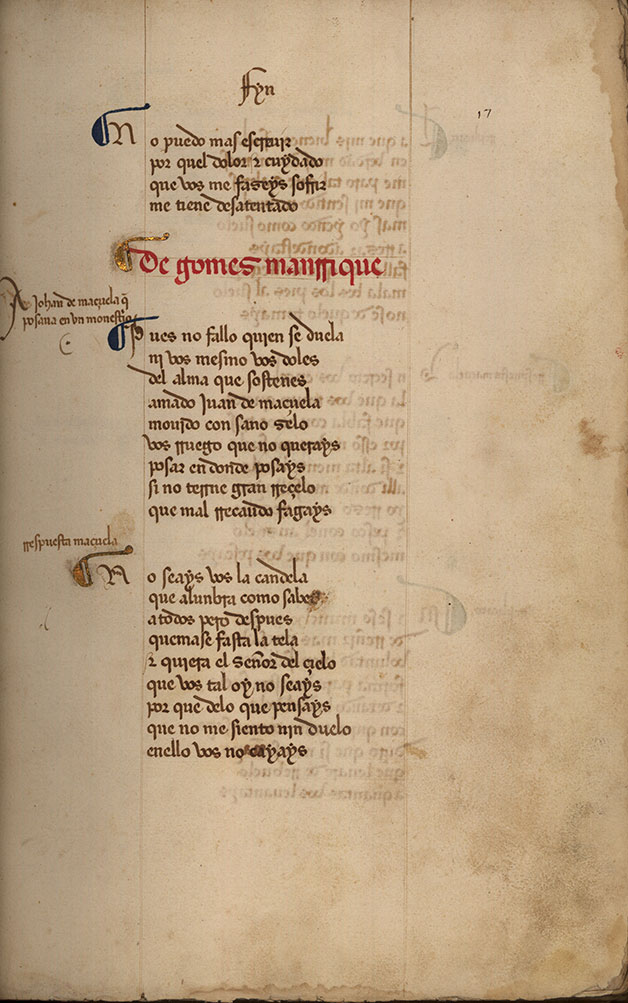 ffyn
17
No puedo mas escriuir
por quel dolor & cuydado
que vos me fazeys sofrir
me tiene desatentado
De gomes manrrique
A Johan de maçuela q̃
posaua en vn monesterio
Pues no fallo quien se duela
ni vos mesmo vos doles
del alma que sostenes
amado Juan de maçuela
mouido con sano zelo
vos rruego que no querays
posar en donde posays
si no terrne gran rreçelo
que mal rrecaudo fagays
rrespuesta maçuela
No seays vos la candela
que alunbra como sabes
a todos pero despues
quemase fasta la tela
& quiera el señor del çielo
que vos tal oy no seays
por que delo que pensays
que no me siento nin duelo
enello vos no cayays